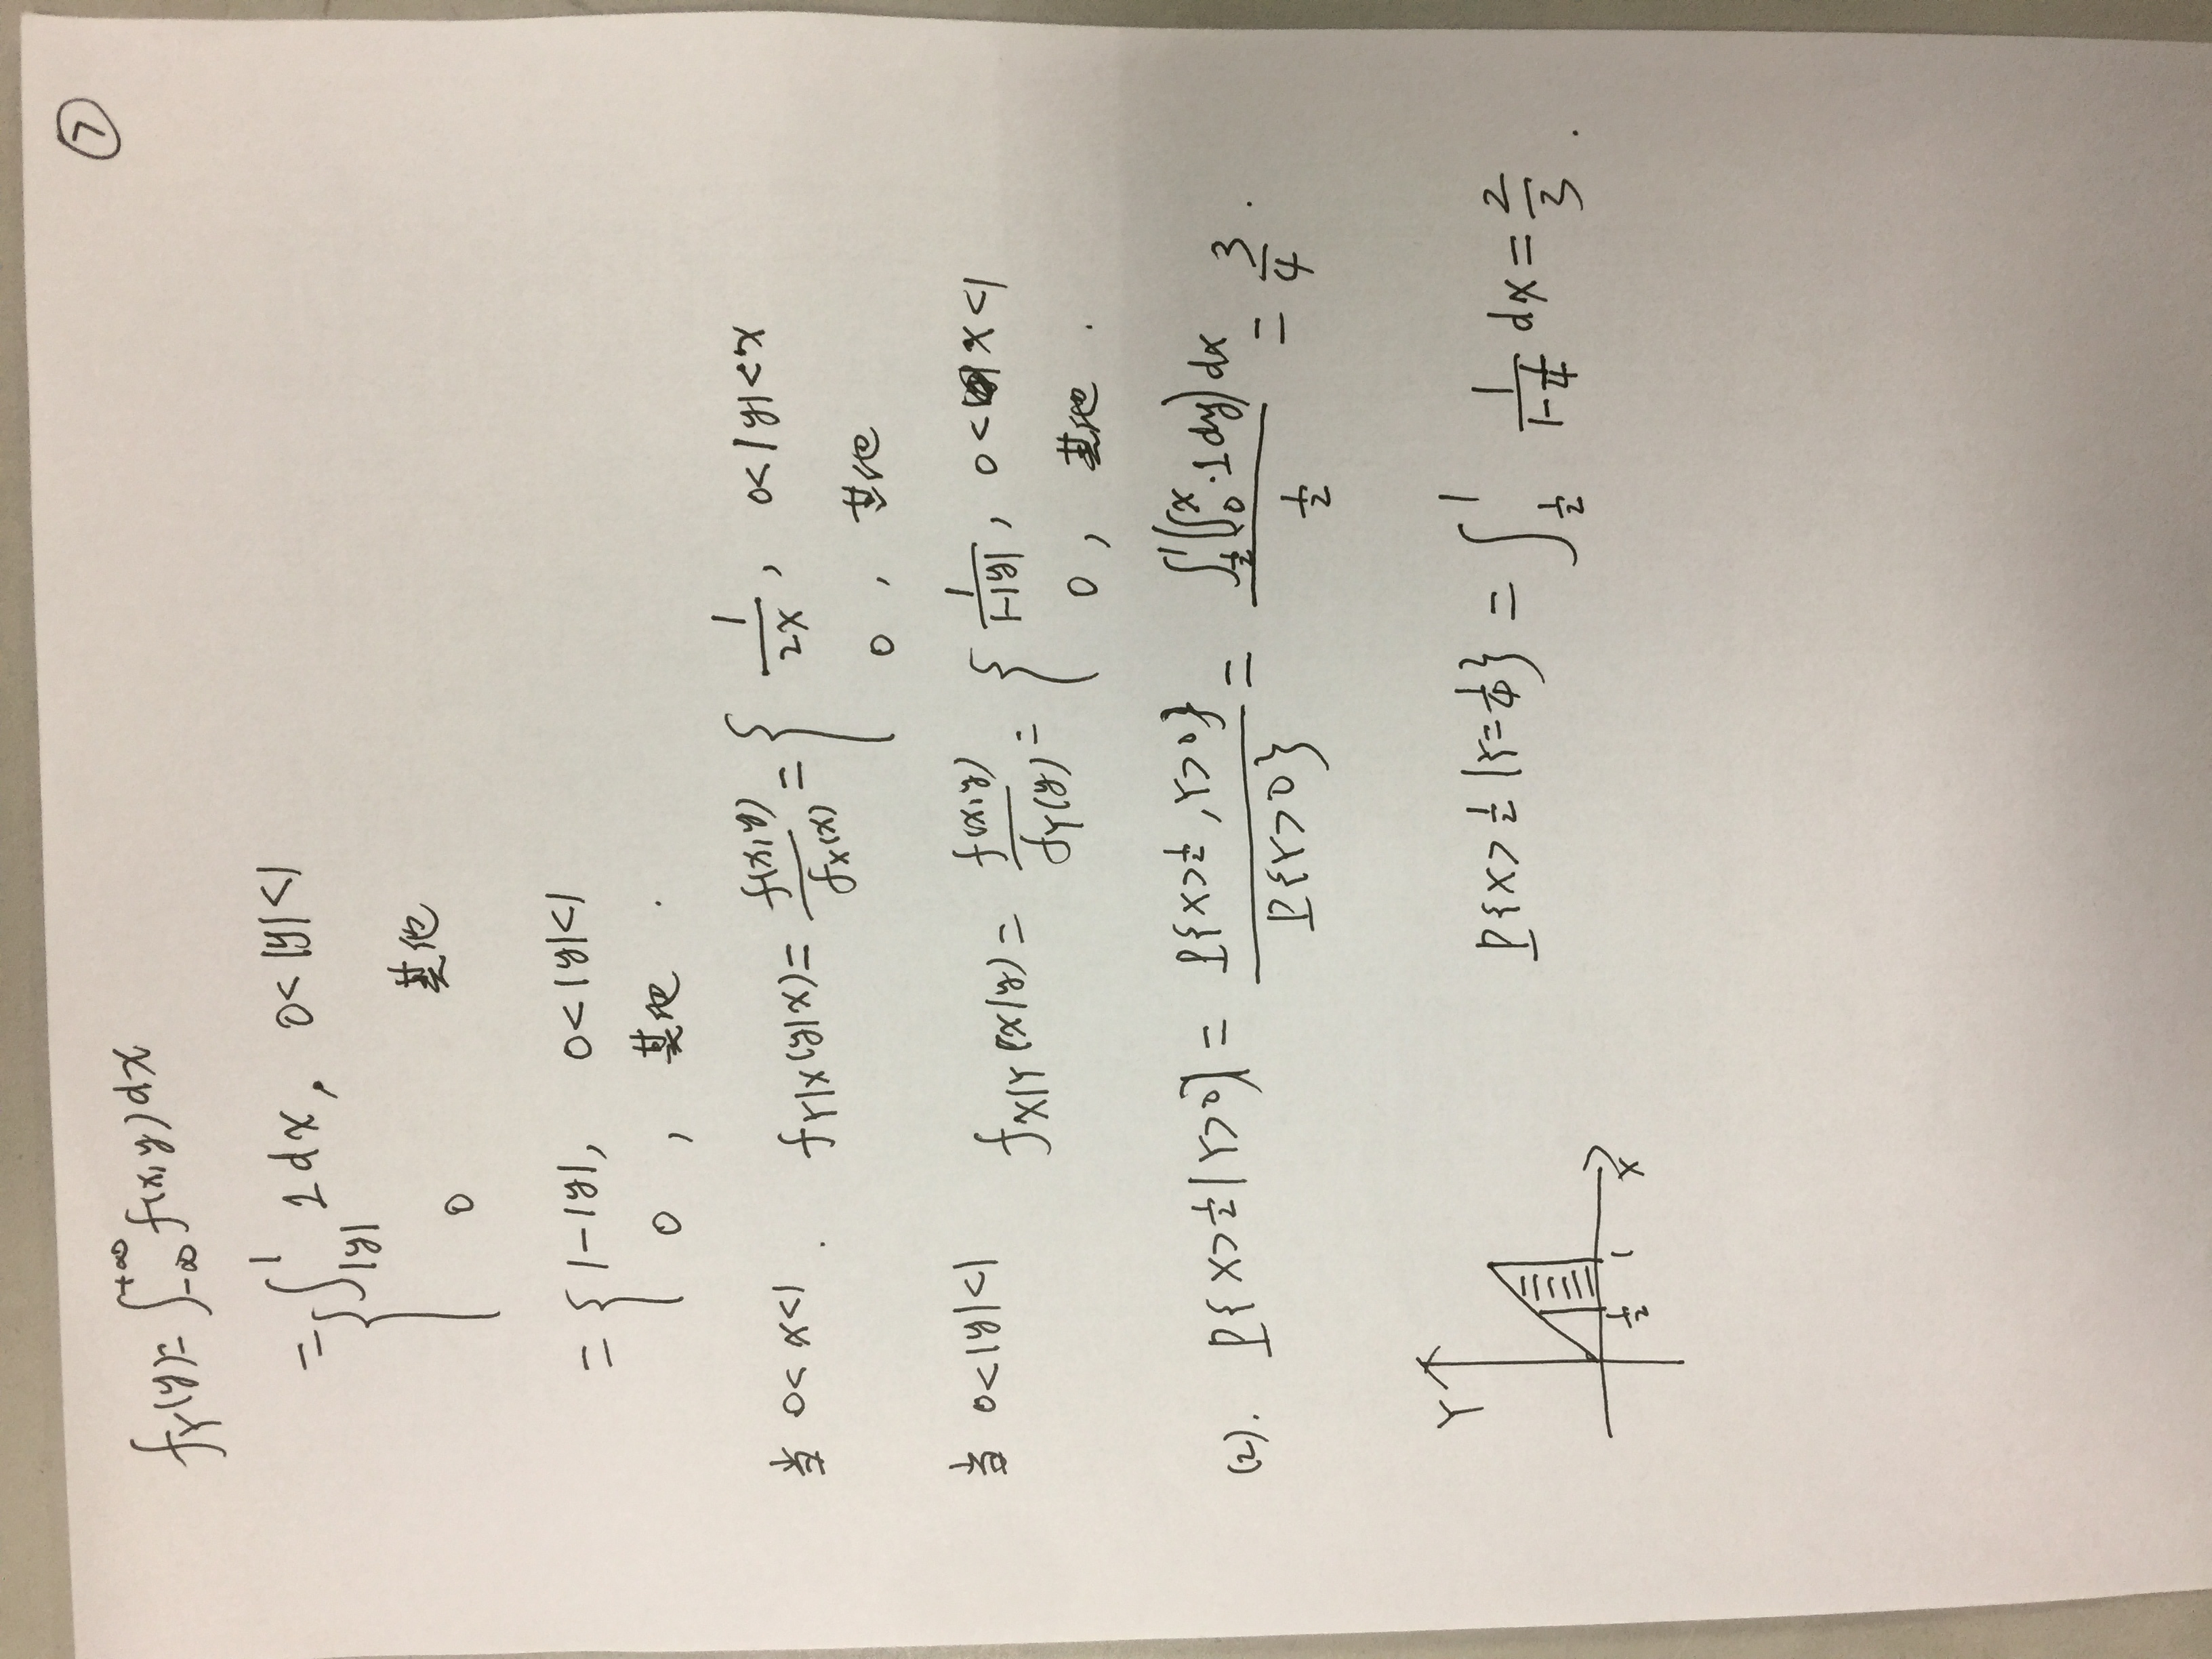 ⑦
f_Y(y)=∫_{-∞}^{+∞} f(x,y)dx
= { ∫_{|y|}^{1} 1dx, 0<|y|<1
0 其他
= { 1-|y|, 0<|y|<1
0 , 其他 .
当 0<x<1 . f_{Y|X}(y|x)= f(x,y)/f_X(x) = { 1/2x , 0<|y|<x
0 , 其他
当 0<|y|<1 f_{X|Y}(x|y)= f(x,y)/f_Y(y) = { 1/1-|y| , 0< x<1
0 , 其他 .
(2). P{X>1/2|Y>0} = P{X>1/2 ,Y>0}/P{Y>0} = ∫_{1/2}^{1}(∫_{0}^{x}·1dy)dx / 1/2 = 3/4 .
P{X>1/2|Y=1/4} = ∫_{1/2}^{1} 1/(1-1/4) dx = 2/3 .
Y
1/2 1 X